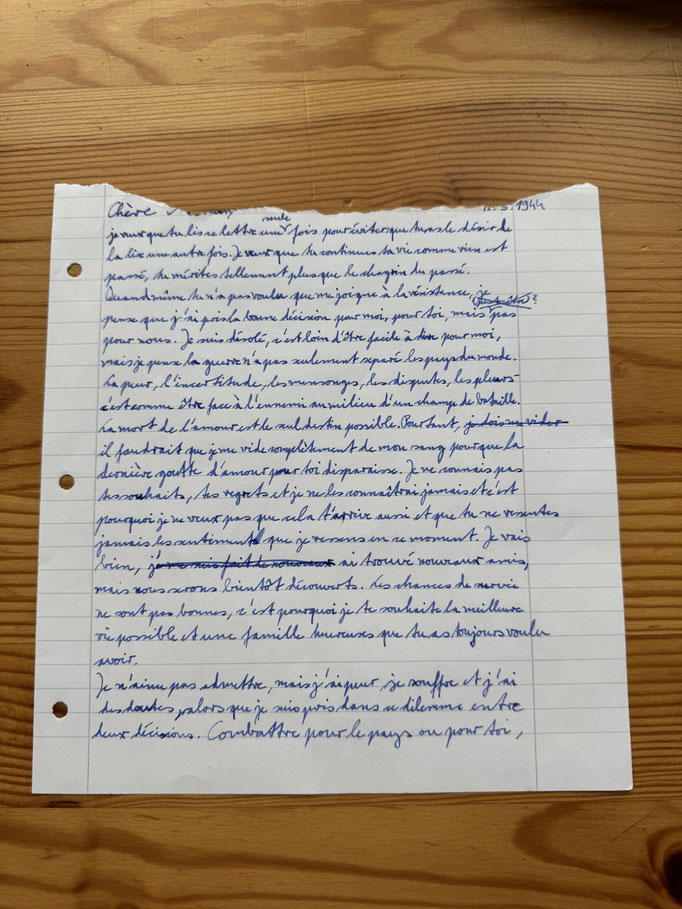 Chère 1944
seule
je veux que tu lis ce lettre une fois pour éviter que tu as le désir de
la lire une autre fois. Je veux que tu continues ta vie comme rien est
passé, tu mérites tellement plus que le chagrin du passé.
Quand même tu n'a pas voulu que me joigne à la résistance, je
peut-être?
pense que j'ai pris la bonne décision pour moi, pour toi, mais pas
pour nous. Je suis désolé, c'est loin d'être facile à dire pour moi,
mais je pense la guerre n'a pas seulement separé les pays du monde.
La peur, l'incertitude, les mensonges, les disputes, les pleurs
c'est comme être face à l'ennemi au milieu d'un champs de bataille.
La mort de l'amour est le seul destin possible. Pourtant, je dois me vider
il faudrait que je me vide complètement de mon sang pour que la
dernière goutte d'amour pour toi disparaisse. Je ne connais pas
tes souhaits, tes regrets et je ne les connaîtrai jamais et c'est
pourquoi je ne veux pas que cela t'arrive aussi et que tu ne ressentes
jamais les sentiments que je ressens en ce moment. Je vais
bien, j'ai trouvé nouveaux amis,
mais nous serons bientôt découverts. Les chances de survie
ne sont pas bonnes, c'est pourquoi je te souhaite la meilleure
vie possible et une famille heureuses que tu as toujours voulu
avoir.
Je n'aime pas admettre, mais j'ai peur, je souffre et j'ai
des doutes, alors que je suis pris dans ce dilemme entre
deux décisions. Combattre pour le pays ou pour toi,